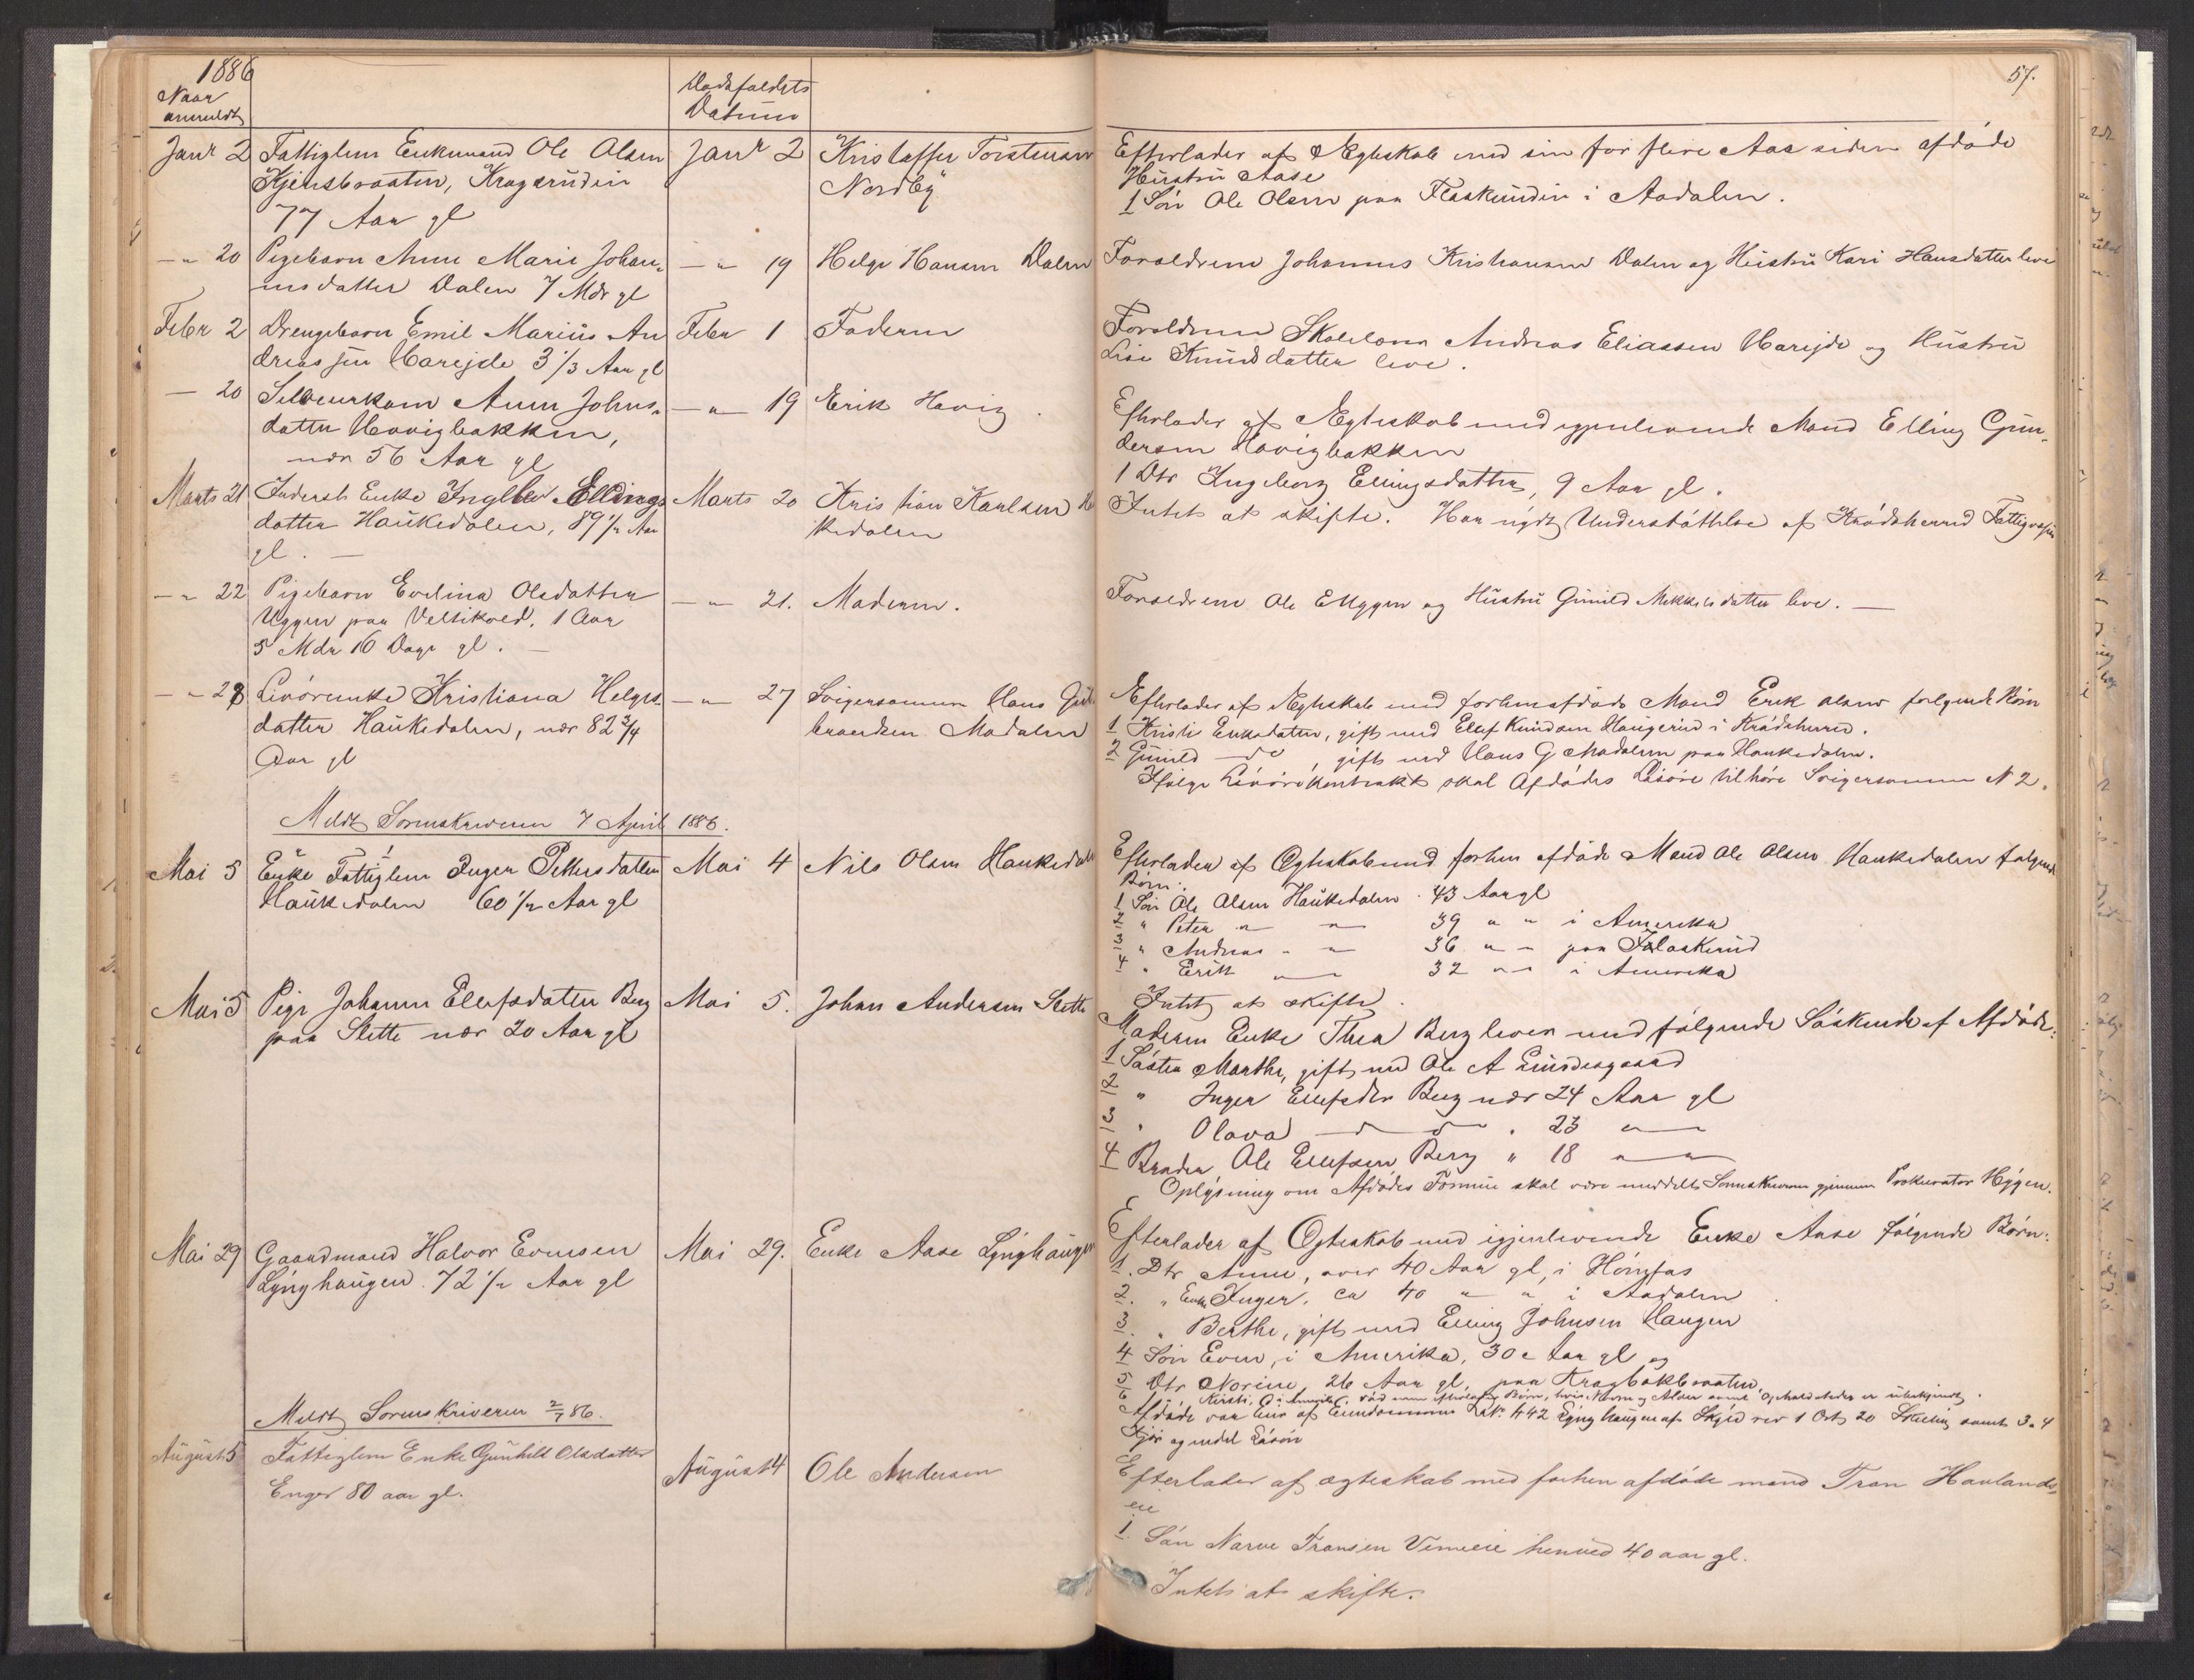 1886
Naar
anmeldt
Dødsfaldets
Datum
57.
Janr 2 Fattiglem Enkemand Ole Olsen
Kjensbraaten, Kragsrudein
77 Aar gl
Janr 2 Kristoffer Torstensen
Nordby
Efterlader af Ægteskab med sin for flere Aar siden afdøde
Hustru Aase
1 Søn Ole Olsen paa Flaskerudein i Aadalen.
— " 20 Pigebarn Anne Marie Johan-
nesdatter Dalen 7 Mdr gl
— " 19 Helge Hansen Dalen
Forældrene Johannes Kristiansen Dalen og Hustru Kari Hansdatter leve
Febr 2 Drengebarn Emil Marius An
dreassen Harejde 3 1/3 Aar gl
Febr 1 Faderen
Forældrene Skolelærer Andreas Eliassen Harejde og Hustru
Lise Knudsdatter leve.
— 20 Selveierkone Anne Johns-
datter Hovigbakken,
nær 56 Aar gl
— " 19 Erik Hovig
Efterlader af Ægteskab med igjenlevende Mand Elling Gun-
dersen Hovigbakken
1 Dtr Ingeborg Ellingsdatter, 9 Aar gl.
Marts 21 Inderst Enke Ingeborg Ellings
datter Haukedalen, 89 1/2 Aar
gl. —
Marts 20 Kristian Karlsen Ha
kedalen
Intet at skifte. Har nydt Understøttelse af Krødsherred Fattigvæsen
— " 22 Pigebarn Evelina Olsdatter
Uggen paa Veltikold, 1 Aar
5 Mdr 16 Dage gl. —
— " 21. Moderen.
Forældrene Ole E Uggen og Hustru Gunild Mikkelsdatter leve. —
— " 28 Livøreenke Kristiana Helges-
datter Haukedalen, nær 82 3/4
Aar gl
— " 27 Svigersønnen Hans Gul
brandsen Modalen
Efterlader af Ægteskab med forhen afdøde Mand Erik Olsen følgende Børn
1 Kristi Eriksdatter, gift med Elef Knudsen Haugerud i Krødsherred.
2 Gunild — do — , gift med Hans G Modalen paa Haukedalen.
Ifølge Livørekontrakt skal Afdødes Løsøre tilhøre Svigersønnen N 2.
Meldt Sorenskriveren 7 April 1886.
Mai 5 Enke Fattiglem Inger Pettersdatter
Haukedalen 60 1/2 Aar gl
Mai 4 Nils Olsen Haukedalen
Efterlader af Ægteskab med forhen afdøde Mand Ole Olsen Haukedalen følgende
Børn:
1 Søn Ole Olsen Haukedalen 43 Aar gl
2 " Peter " — " — 39 " " i Amerika
3 " Andreas " — " 36 " " paa Flaskerud
4 " Erik " — 32 " " i Amerika
Intet at skifte.
Mai 5 Pige Johanne Ellefsdatter Berg
paa Slette nær 20 Aar gl
Mai 5. Johan Andersen Slette
Moderen Enke Thea Berg lever med følgende Søskende af Afdøde:
1 Søster Marthe, gift med Ole A Lindesgaard
2 " Inger Ellefsdtr Berg nær 24 Aar gl
3 " Olava — d — d — " 23 " —
4 Broder Ole Ellefsen Berg " 18 " — "
Oplysning om Afdødes Formue skal være meddelt Sorenskriveren gjennem Prokurator Høyen.
Mai 29 Gaardmand Halvor Evensen
Lynghaugen 72 1/2 Aar gl
Mai 29. Enke Aase Lynghaugen
Efterlader af Ægteskab med igjenlevende Enke Aase følgende Børn:
1. Dtr Anne, over 40 Aar gl, i Hønefos
2. " Enke Inger, ca 40 " " i Aadalen
3. " Berthe, gift med Elling Johnsen Haugen
4 Søn Even, i Amerika, 30 Aar gl og
5 Dtr Norine 26 Aar gl, paa Kragbakbraaten
6 " Kirsti, i Amerika, død men efterladt Børn, hvis Navn og Alder samt Opholdssteder er ubekjendt.
Afdøde var Eier af Eiendommen L.No 442 Lynghaugen af Skyld rev 1 Ort 20 Skilling samt 3 a 4
Kjør og endel Løsøre
Meldt Sorenskriveren 2/7 86.
August 5 Fattiglem Enke Gunhild Olsdatter
Enger 80 aar gl.
August 4 Ole Andersen
Efterlader af ægteskab med forhen afdøde mand Tron Havlands-
eie
1 Søn Narve Tronsen Vemeeie henved 40 aar gl.
Intet at skifte.